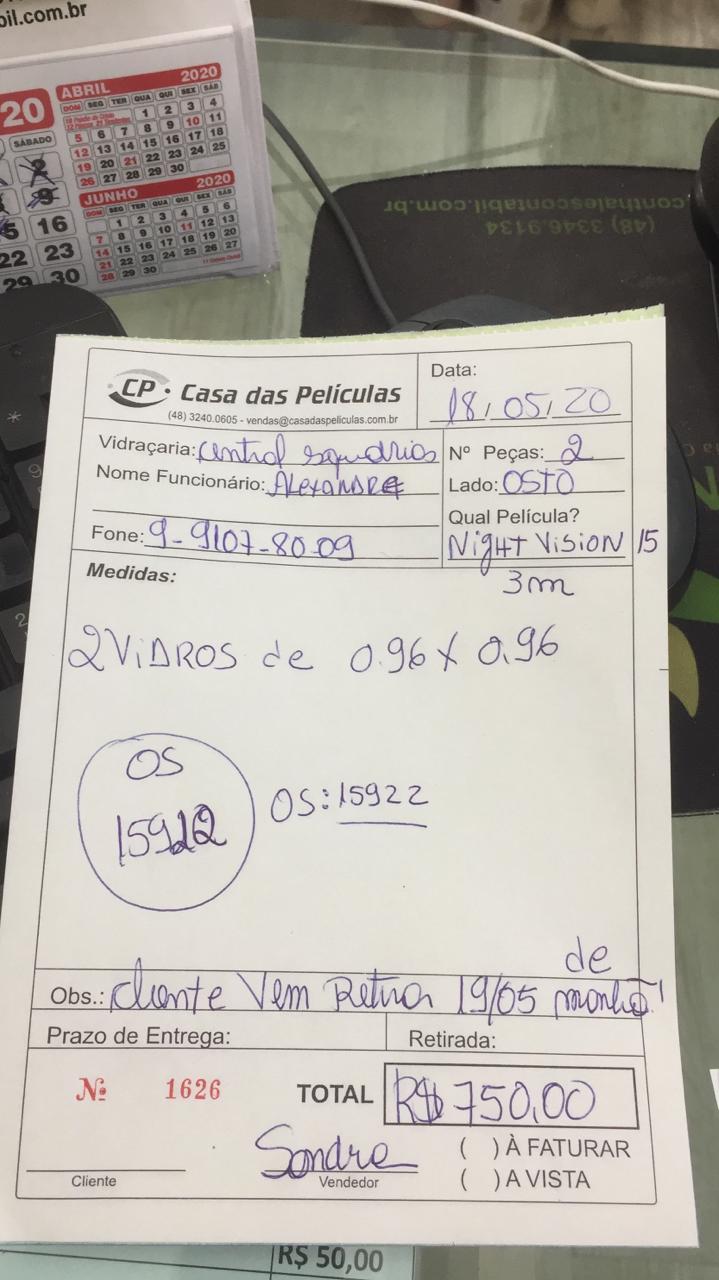 bil.com.br
20
SÁBADO
2
9
5 16
22 23
29 30
ABRIL 2020
DOM SEG TER QUA QUI SEX SÁB
1 2 3 4
5 6 7 8 9 10 11
12 13 14 15 16 17 18
19 20 21 22 23 24 25
26 27 28 29 30
JUNHO 2020
DOM SEG TER QUA QUI SEX SÁB
1 2 3 4 5 6
7 8 9 10 11 12 13
14 15 16 17 18 19 20
21 22 23 24 25 26 27
28 29 30
conthalescontabil.com.br
(48) 3346.9134
CP Casa das Películas
(48) 3240.0605 - vendas@casadaspeliculas.com.br
Data:
18/05/20
Vidraçaria: Central Esquadrias
Nome Funcionário: ALEXANDRE
Fone: 9-9107-80.09
Nº Peças: 2
Lado: OSTO
Qual Película?
Night Vision 15
3m
Medidas:
2 VIDROS de 0.96 X 0.96
OS
15922
OS: 15922
Obs.: Cliente Vem Retirar 19/05 de manhã!
Prazo de Entrega:
Retirada:
Nº 1626
TOTAL R$ 750,00
Sandra
( ) À FATURAR
Cliente
Vendedor
( ) A VISTA
R$ 50,00